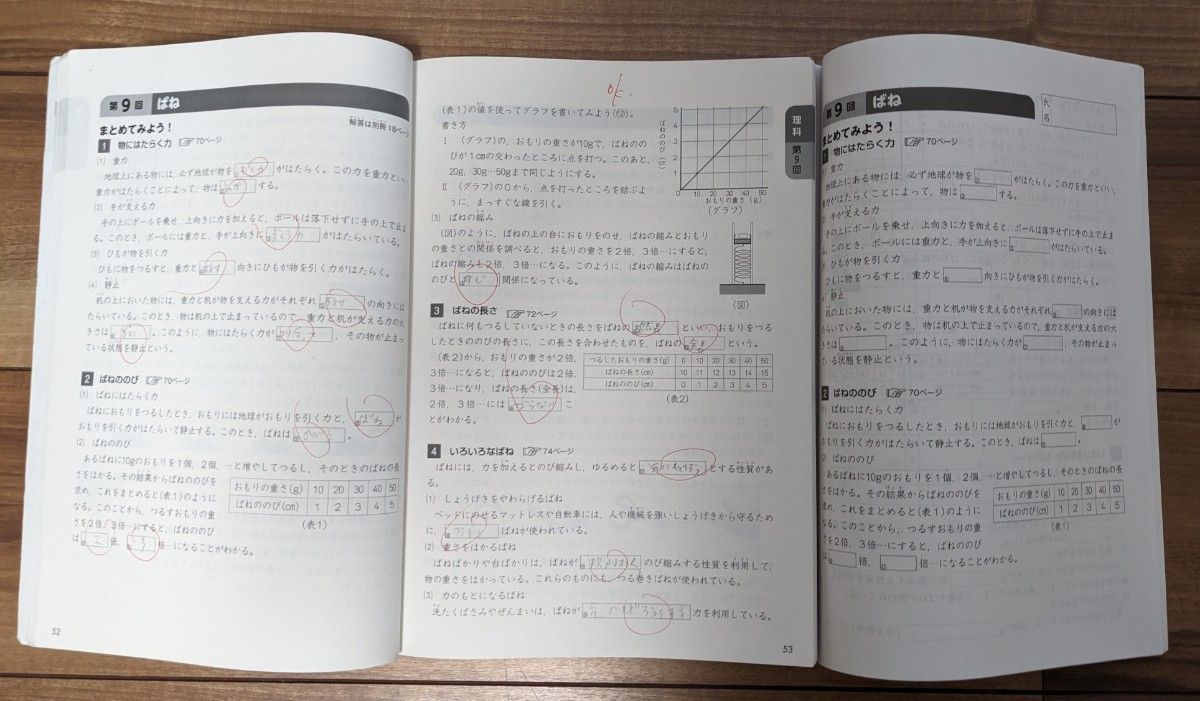 第9回 ばね
解答は別冊 18ページ
まとめてみよう！
1 物にはたらく力 ☞70ページ
(1) 重力
地球上にある物には，必ず地球が物を引く力がはたらく。この力を重力といい，
重力がはたらくことによって，物は する。
(2) 手が支える力
手の上にボールを乗せ，上向きに力を加えると，ボールは落下せずに手の上で止ま
る。このとき，ボールには重力と，手が上向きに支える力がはたらいている。
(3) ひもが物を引く力
ひもに物をつるすと，重力と 向きにひもが物を引く力がはたらく。
(4) 静止
机の上においた物には，重力と机が物を支える力がそれぞれ の向きには
たらいている。このとき，物は机の上で止まっているので，重力と机が支える力の大
きさは 。このように，物にはたらく力が ，その物が止まっ
ている状態を静止という。
2 ばねののび ☞70ページ
(1) ばねにはたらく力
ばねにおもりをつるしたとき，おもりには地球がおもりを引く力と， が
おもりを引く力がはたらいて静止する。このとき，ばねは 。
(2) ばねののび
あるばねに10gのおもりを1個，2個，…と増やしてつるし，そのときのばねの長
さをはかる。その結果からばねののびを
求め，これをまとめると(表1)のように
なる。このことから，つるすおもりの重
さを2倍，3倍…にすると，ばねののび
は 2 倍， 3 倍…になることがわかる。
おもりの重さ(g) 10 20 30 40 50
ばねののび(cm) 1 2 3 4 5
(表1)
52
ok.
(表1)の値を使ってグラフを書いてみよう(図)。
書き方
Ⅰ (グラフ)の，おもりの重さが10gで，ばねのの
びが1cmの交わったところに点を打つ。このあと，
20g，30g…50gまで同じようにする。
Ⅱ (グラフ)の0から，点を打ったところを結ぶよ
うに，まっすぐな線を引く。
ばねののび(cm)
5
4
3
2
1
0 10 20 30 40 50
おもりの重さ(g)
(グラフ)
理科 第9回
(3) ばねの縮み
(図)のように，ばねの上の台におもりをのせ，ばねの縮みとおもり
の重さとの関係を調べると，おもりの重さを2倍，3倍…にすると，
ばねの縮みも2倍，3倍…になる。このように，ばねの縮みはばねの
のびと 同じ 関係になっている。
(図)
3 ばねの長さ ☞72ページ
ばねに何もつるしていないときの長さをばねの自然長といい，おもりをつる
したときののびの長さに，この長さを合わせたものを，ばねの全長という。
(表2)から，おもりの重さが2倍，
3倍…になると，ばねののびは2倍，
3倍…になり，ばねの長さ(全長)は，
2倍，3倍…には ならない こ
とがわかる。
つるしたおもりの重さ(g) 0 10 20 30 40 50
ばねの長さ(cm) 10 11 12 13 14 15
ばねののび(cm) 0 1 2 3 4 5
(表2)
4 いろいろなばね ☞74ページ
ばねには，力を加えるとのび縮みし，ゆるめると とする性質があ
る。
(1) しょうげきをやわらげるばね
ベッドにのせるマットレスや自動車には，人や機械を強いしょうげきから守るため
に， ばねが使われている。
(2) 重さをはかるばね
ばねばかりや台ばかりは，ばねが のび縮みする性質を利用して，
物の重さをはかっている。これらのものにも，つる巻きばねが使われている。
(3) 力のもとになるばね
洗たくばさみやぜんまいは，ばねが 力を利用している。
53
第9回 ばね
氏名
まとめてみよう！
1 物にはたらく力 ☞70ページ
重力
地球上にある物には，必ず地球が物を がはたらく。この力を重力といい，
重力がはたらくことによって，物は する。
手が支える力
手の上にボールを乗せ，上向きに力を加えると，ボールは落下せずに手の上で止ま
る。このとき，ボールには重力と，手が上向きに がはたらいている。
ひもが物を引く力
ひもに物をつるすと，重力と 向きにひもが物を引く力がはたらく。
静止
机の上においた物には，重力と机が物を支える力がそれぞれ の向きには
たらいている。このとき，物は机の上で止まっているので，重力と机が支える力の大
きさは 。このように，物にはたらく力が ，その物が止まっ
ている状態を静止という。
2 ばねののび ☞70ページ
ばねにはたらく力
ばねにおもりをつるしたとき，おもりには地球がおもりを引く力と， が
おもりを引く力がはたらいて静止する。このとき，ばねは 。
ばねののび
あるばねに10gのおもりを1個，2個，…と増やしてつるし，そのときのばねの長
さをはかる。その結果からばねののびを
求め，これをまとめると(表1)のように
なる。このことから，つるすおもりの重
さを2倍，3倍…にすると，ばねののび
は 倍， 倍…になることがわかる。
おもりの重さ(g) 10 20 30 40 50
ばねののび(cm) 1 2 3 4 5
(表1)